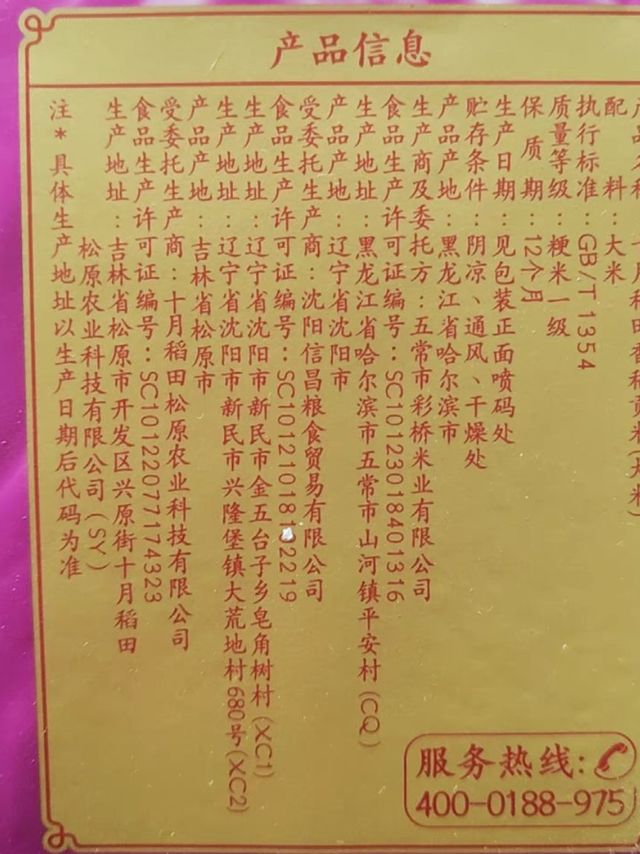 产品信息
配料:大米
执行标准:GB/T 1354
质量等级:粳米一级
保质期:12个月
生产日期:见包装正面喷码处
贮存条件:阴凉、通风、干燥处
产品产地:黑龙江省哈尔滨市
生产商及委托方:五常市彩桥米业有限公司
食品生产许可证编号:SC10123018401316
生产地址:黑龙江省哈尔滨市五常市山河镇平安村(CQ)
产品产地:辽宁省沈阳市
受委托生产商:沈阳信昌粮食贸易有限公司
食品生产许可证编号:SC10121018102219
生产地址:辽宁省沈阳市新民市金五台子乡皂角树村(XC1)
生产地址:辽宁省沈阳市新民市兴隆堡镇大荒地村680号(XC2)
产品产地:吉林省松原市
受委托生产商:十月稻田松原农业科技有限公司
食品生产许可证编号:SC10122077174323
生产地址:吉林省松原市开发区兴原街十月稻田
松原农业科技有限公司(SY)
注*具体生产地址以生产日期后代码为准
服务热线:
400-0188-975